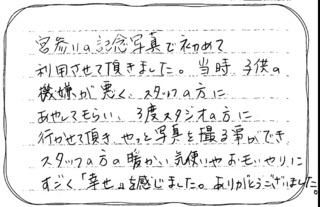 宮参りの記念写真で初めて
利用させて頂きました。当時、子供の
機嫌が悪く、スタッフの方に
あやしてもらい、3度スタジオの方に
行かせて頂き、やっと写真を撮る事ができ、
スタッフの方の暖かい気使いやおもいやりに
すごく「幸せ」を感じました。ありがとうございました。